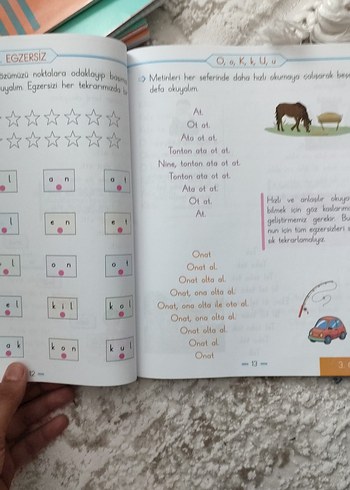 EGZERSİZ
özümüzü noktalara odaklayıp
uyalım. Egzersizi her tekrarımızda
l
a n
a t
l
e n
e t
l
o n
o t
e l
k i l
k o l
a k
k o n
k u l
12
O, o, K, k, U, u
Metinleri her seferinde daha hızlı okumaya çalışarak beş
defa okuyalım.
At.
Ot at.
Ata ot at.
Tonton ata ot at.
Nine, tonton ata ot at.
Tonton ata ot at.
Ata ot at.
Ot at.
At.
Hızlı ve anlaşılır
bilmek için göz
geliştirmemiz gerekir.
nun için tüm egzersizleri
sık tekrarlamalıyız.
Onat
Onat al.
Onat olta al.
Onat, ona olta al.
Onat, ona olta ile oto al.
Onat, ona olta al.
Onat olta al.
Onat al.
Onat
13
3.